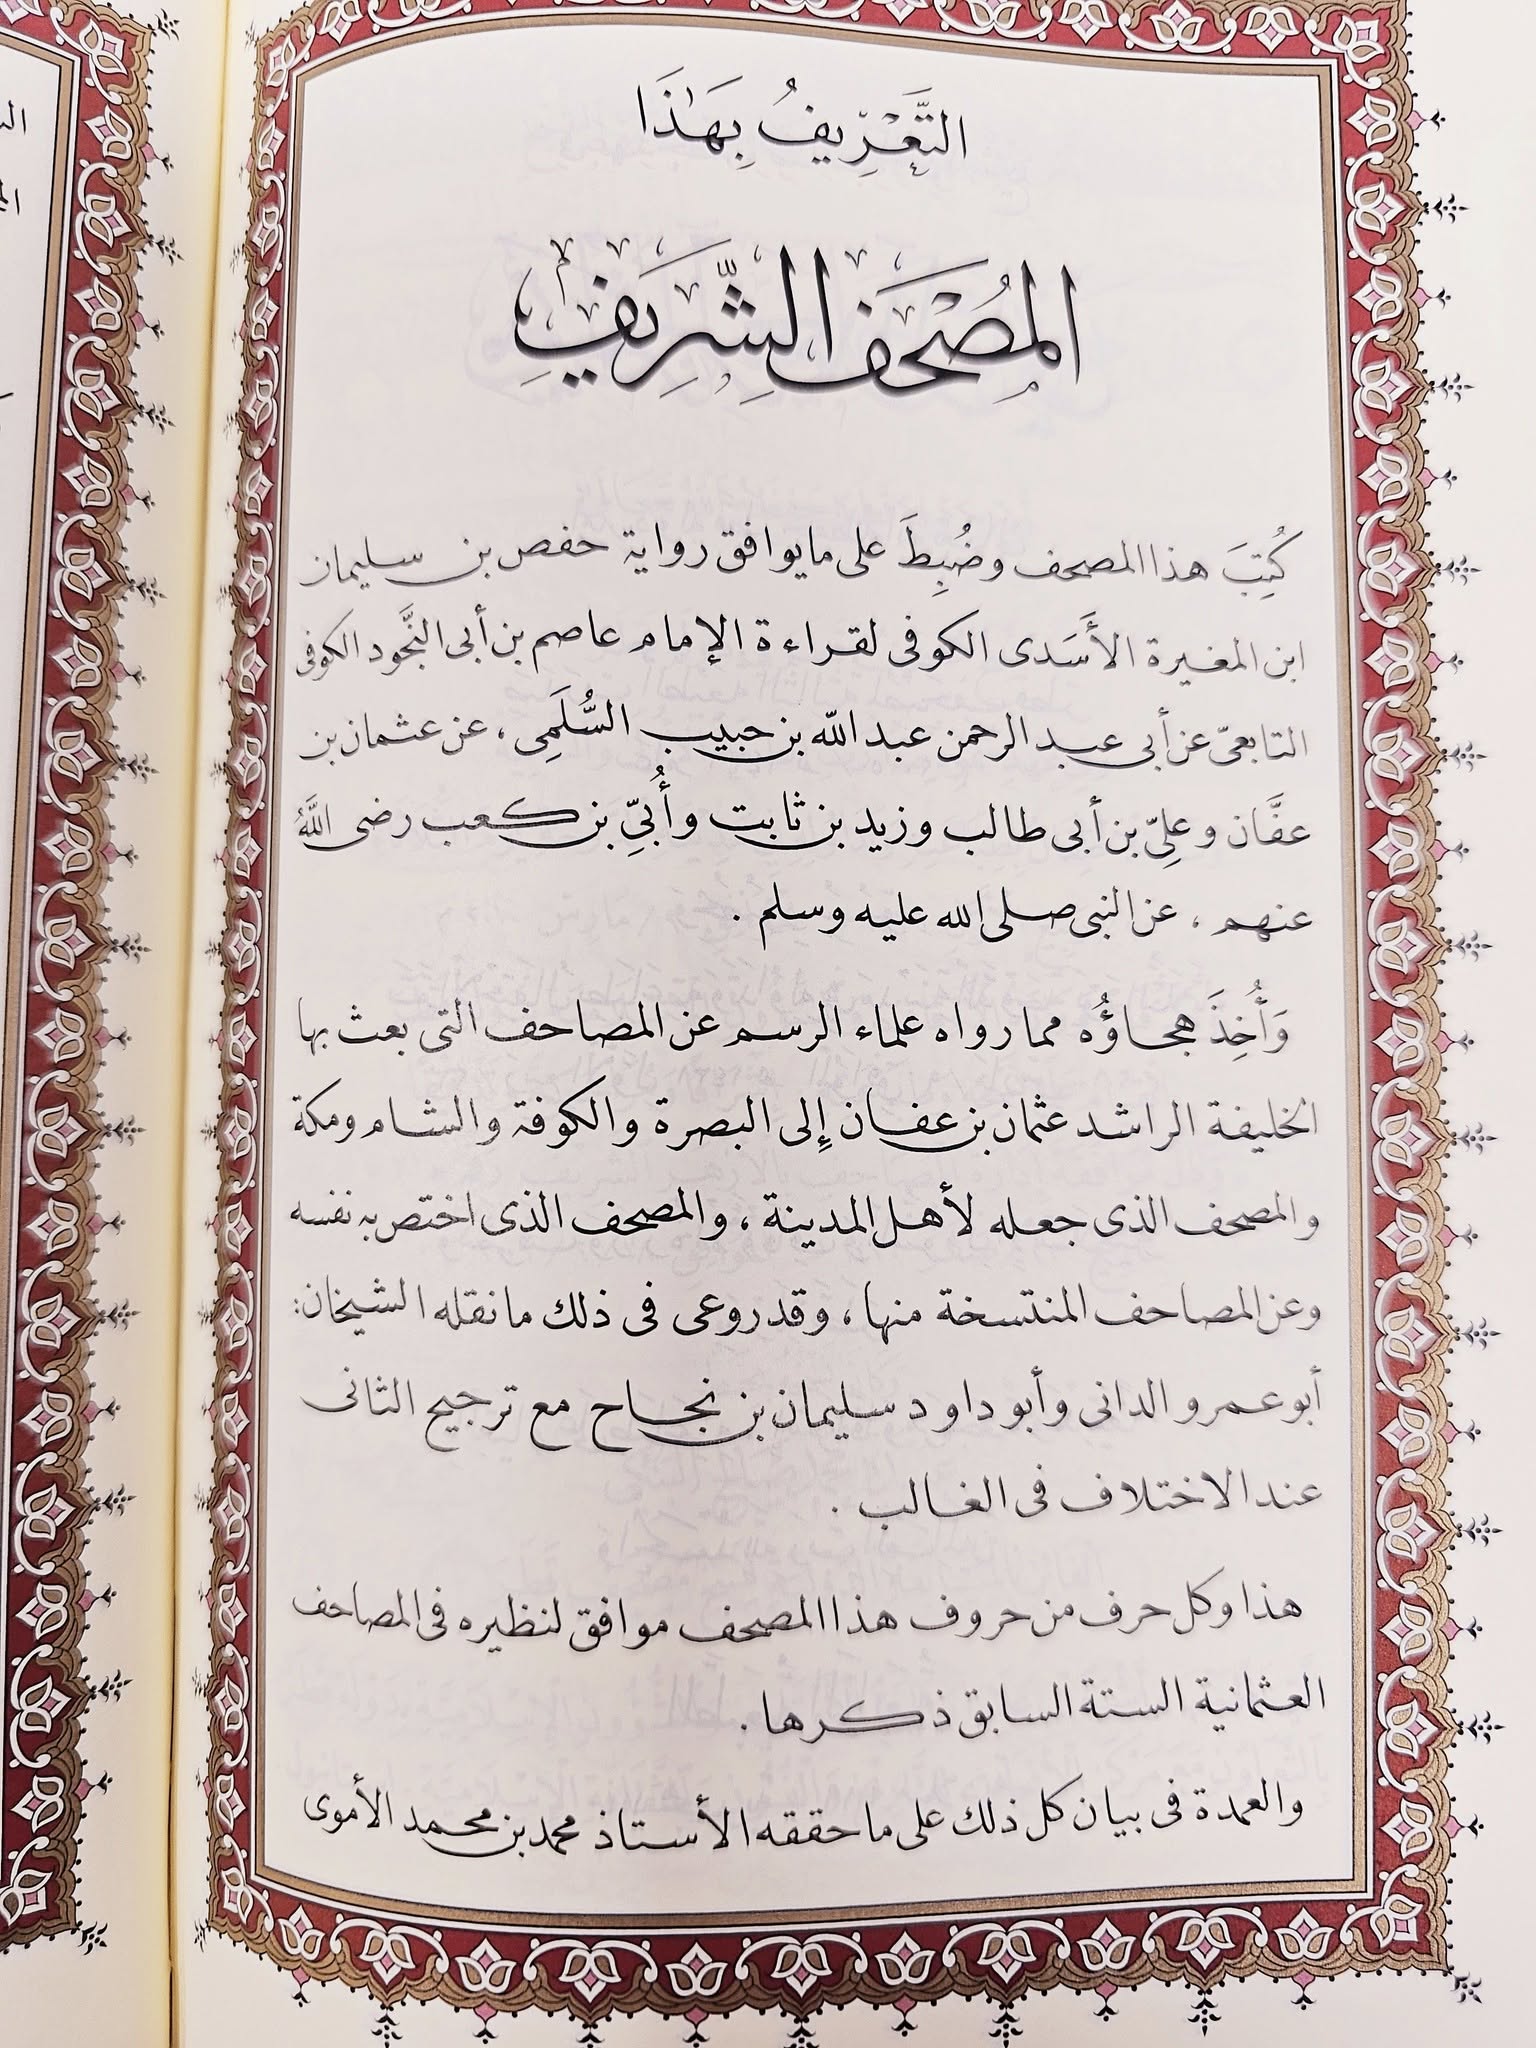 التَّعْرِيفُ بِهَٰذَا
المُصْحَفِ الشَّرِيفِ
كُتِبَ هذا المصحف وضُبِطَ على ما يوافق رواية حفص بن سليمان
ابن المغيرة الأَسَدى الكوفى لقراءة الإمام عاصم بن أبى النَّجود الكوفى
التابعىّ عن أبى عبد الرحمن عبد الله بن حبيب السُّلَمِى ، عن عثمان بن
عفَّان وعلِىّ بن أبى طالب وزيد بن ثابت وأُبَىِّ بن كعب رضى اللَّهُ
عنهم ، عن النبى صلى الله عليه وسلم .
وَأُخِذَ هجاؤُه مما رواه علماء الرسم عن المصاحف التى بعث بها
الخليفة الراشد عثمان بن عفان إِلى البصرة والكوفة والشام ومكة
والمصحف الذى جعله لأهل المدينة ، والمصحف الذى اختص به نفسه
وعن المصاحف المنتسخة منها ، وقد روعى فى ذلك ما نقله الشيخان:
أبو عمرو الدانى وأبو داود سليمان بن نجاح مع ترجيح الثانى
عند الاختلاف فى الغالب .
هذا وكل حرف من حروف هذا المصحف موافق لنظيره فى المصاحف
العثمانية الستة السابق ذكرها .
والعمدة فى بيان كل ذلك على ما حققه الأستاذ محمد بن محمد الأموى